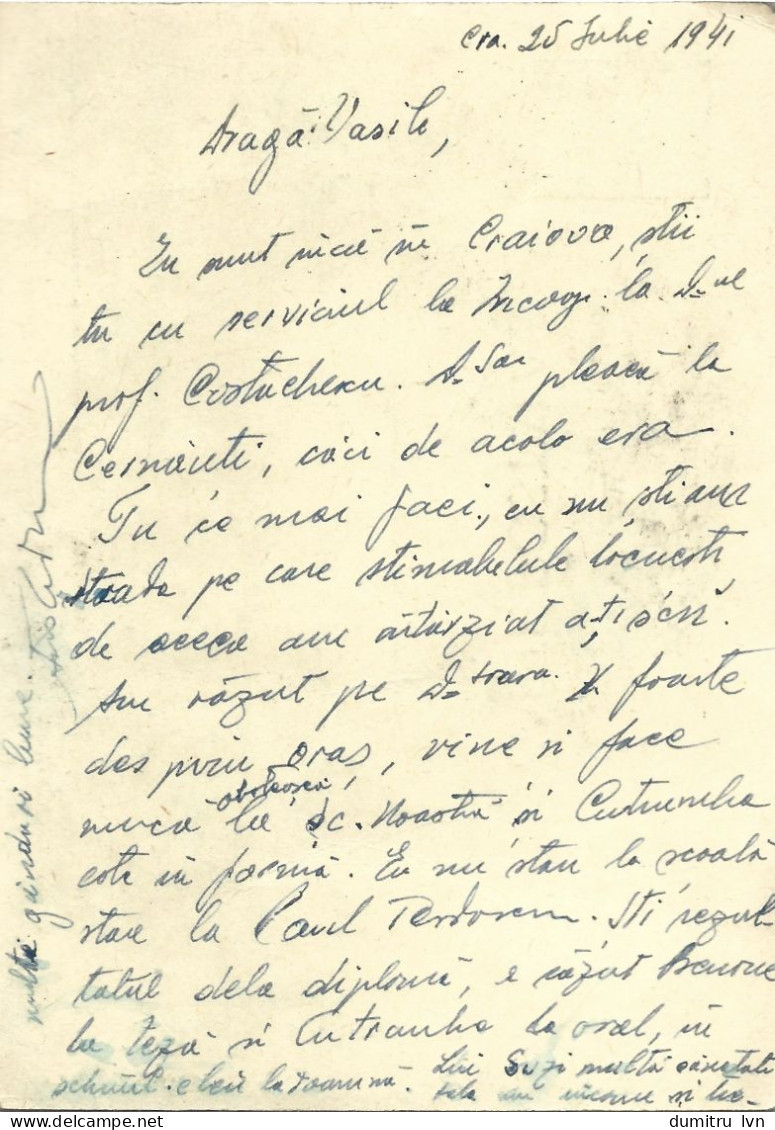 Cra. 25 Iulie 1941
Dragă Vasile,
Eu sunt nică in Craiova, stii
tu cu serviciul la Incoop. la D-ul
prof. Costăchescu. D-sa pleacă la
Cernăuti, căci de acolo era.
Tu ce mai faci, eu nu stiam
strada pe care stimabelule locuesti,
de aceea am intârziat a-ți scri.
Am văzut pe D-
foarte
des prin oraș, vine si face
muncă obsteasca la sc. Noastră si Cutrumba
este in formă. Eu nu stau la scoală
stau la Căm. Tudorescu. Sti rezul-
tatul dela diplomă, e căzut
la teză si Cutrumba la oral, in
schimb e leu la toamnă. Lui Suzi multă sănătate
si
multe gânduri bune.
dumitru lvn